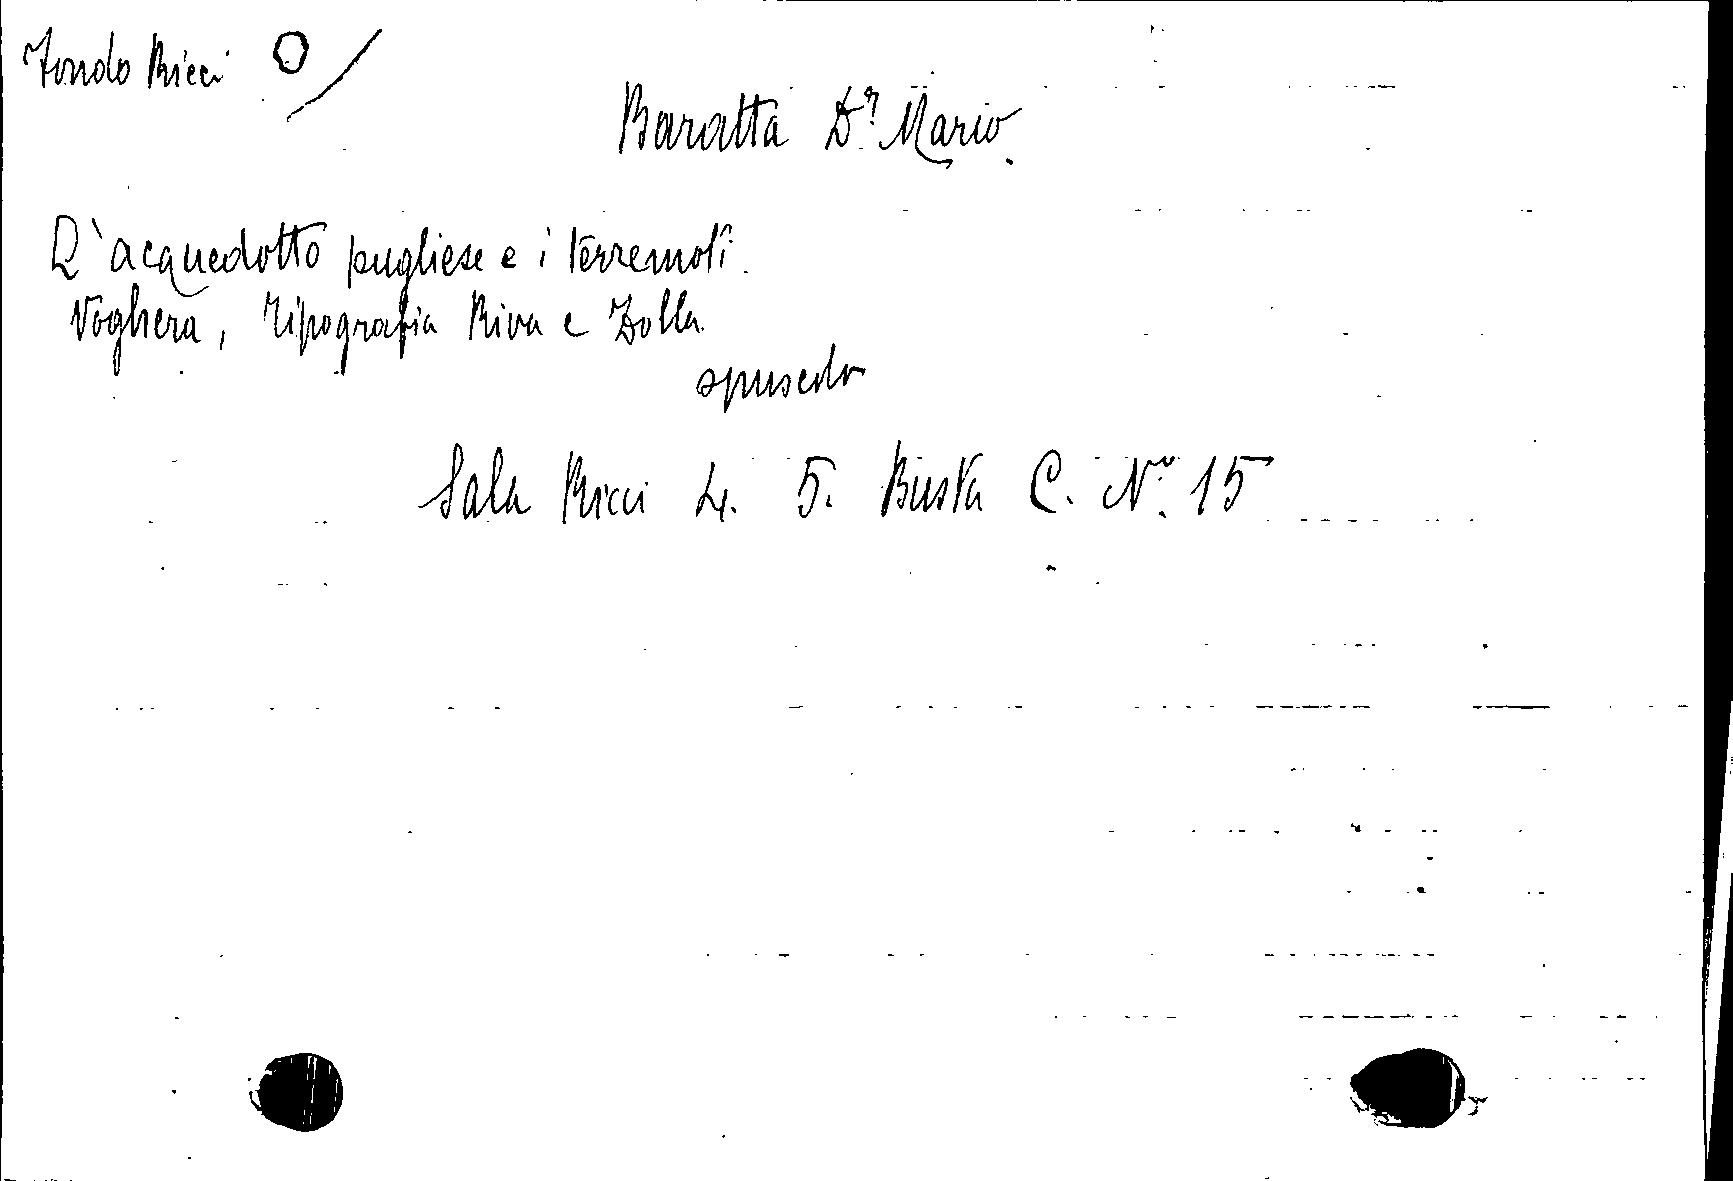 Fondo Ricci O /
Baratta Dr. Mario.
L'acquedotto pugliese e i terremoti.
Voghera, Tipografia Riva e Zolla
opuscolo
Sala Ricci 4. 5. Busta C. No. 15